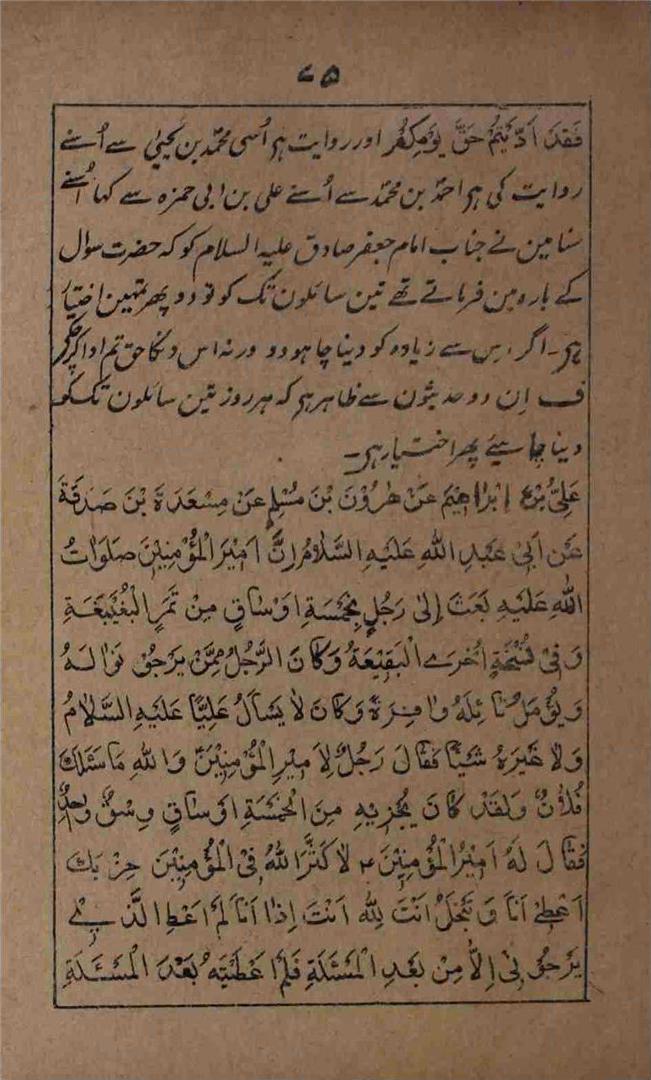 ۷۵
فَقَدْ اَدَّیْتُمْ حَقَّ یَوْمِکُمْ اور روایت ہو اُسی محمد بن یحییٰ سے اُسنے
روایت کی ہو احمد بن محمد سے اُسنے علی بن ابی حمزہ سے کہا اُسنے
سنا مین نے جناب امام جعفر صادق علیہ السلام کو کہ حضرت سوال
کے بارہ مین فرماتے تھے تین سائلون تک کو تو دو پھر تمہین اختیار
ہو۔ اگر اِس سے زیادہ کو دینا چاہو دو ورنہ اس دنکا حق تم ادا کرچکے
ف اِن دو حدیثون سے ظاہر ہو کہ ہر روز تین سائلون تک کو
دینا چاہیئے پھر اختیار ہو۔
عَلِیُّ بْنُ اِبْرَاهِیْمَ عَنْ هٰرُوْنَ بْنِ مُسْلِمٍ عَنْ مِسْعَدَةَ بْنِ صَدَقَةَ
عَنْ اَبِیْ عَبْدِ اللّٰهِ عَلَیْهِ السَّلَامُ اِنَّ اَمِیْرَ الْمُؤْمِنِیْنَ صَلَوَاتُ
اللّٰهِ عَلَیْهِ بَعَثَ اِلٰی رَجُلٍ بِخَمْسَةِ اَوْسَاقٍ مِنْ تَمْرِ الْبُغَیْبِغَةِ
وَفِیْ نُسْخَةٍ اُخْرٰی الْبَقِیْعَةِ وَکَانَ الرَّجُلُ مِمَّنْ یَرْجُوْ نَوَالَهٗ
وَیُؤَمِّلُ نَائِلَهٗ وَافِرَةً وَکَانَ لَا یَسْاَلُ عَلِیًّا عَلَیْهِ السَّلَامُ
وَلَا غَیْرَهٗ شَیْئًا فَقَالَ رَجُلٌ لِاَمِیْرِ الْمُؤْمِنِیْنَ وَاللّٰهِ مَا سَئَلَكَ
فُلَانٌ وَلَقَدْ کَانَ یُجْزِیْهِ مِنَ الْخَمْسَةِ اَوْسَاقٍ وَسْقٌ وَاحِدٌ
فَقَالَ لَهٗ اَمِیْرُ الْمُؤْمِنِیْنَ ؑ لَا کَثَّرَ اللّٰهُ فِی الْمُؤْمِنِیْنَ ضَرْبَكَ
اُعْطِیْ اَنَا وَتَبْخَلُ اَنْتَ لِلّٰهِ اَنْتَ اِذَا اَنَا لَمْ اُعْطِ الَّذِیْ
یَرْجُوْنِیْ اِلَّا مِنْ بَعْدِ الْمَسْئَلَةِ فَلَمْ اُعْطَیْتُهٗ بَعْدَ الْمَسْئَلَةِ